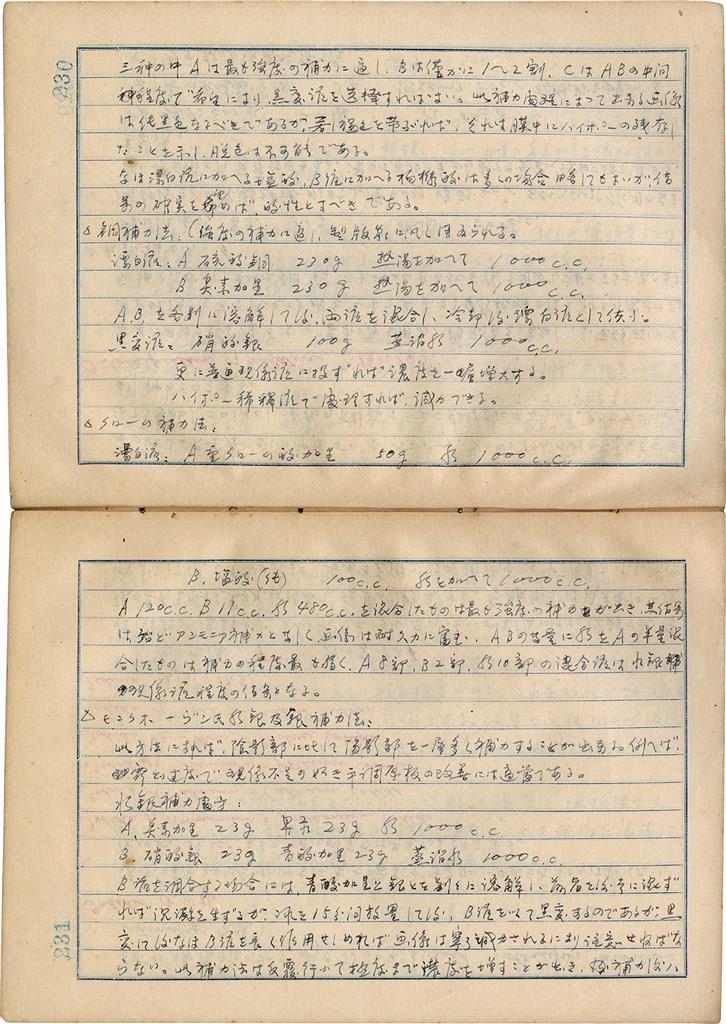 230
三種の中Aは最も強度の補力に適し、Bは僅かに1〜2割、CはABの中間
種程度で希望により黒変液を選択すればよい。此補力処理によつて出来る画像
は純黒色なるべきであるが、若し褐色を帯ぶれば、それは膜中にハイポーの残存し
たことを示し、脱色は不可能である。
なほ漂白液に加へる塩酸、B液に加へる枸櫞酸は多くの場合略してもよいが、結
果の確実を望めば、酸性とすべきである。
△銅補力法:(強度の補力に適し、製版家に汎く用ゐられる。
漂白液:A 硫酸銅 230g 熱湯を加へて 1000c.c.
B 臭素加里 230g 熱湯を加へて 1000c.c.
A,Bを各別に溶解して後、両液を混合し、冷却後漂白液として供す。
黒変液:硝酸銀 100g 蒸溜水 1000c.c.
更に普通現像液に投ずれば濃度を一層増大する。
ハイポー稀釋液で処理すれば、減力できる。
△クローム補力法:
漂白液:A 重クローム酸加里 50g 水 1000c.c.
B. 塩酸(純) 100c.c. 水を加へて1000c.c.
A 120c.c. B 11c.c. 水 480c.c.を混合したものは最も強度の補力が出来、其結果
は殆どアンモニア補力と等しく画像は耐久力に富む。ABの等量に水をAの半量混
合したものは補力の程度最も弱く、A8部、B2部、水10部の混合液は水銀補
力現像液程度の結果となる。
△モンクホーヴン氏水銀及銀補力法:
此方法によれば、陰影部に比して陽影部を一層多く補力することが出来る。例へば、
露出過度で現像不足の如き平調原板の改善には適当である。
水銀補力処方:
A. 臭素加里 23g 昇汞 23g 水 1000c.c.
B. 硝酸銀 23g 青酸加里 23g 蒸溜水 1000c.c.
B液を調合する場合には、青酸加里と銀とを別々に溶解し、前者を後者に注ず
れば沈澱を生ずるが、これを15分間放置して後、B液を以て黒変するのであるが、黒
変して後なほB液を長く作用せしめれば画像は寧ろ減力されるにより注意せねばな
らない。此補力法は反覆行ふて極度まで濃度を増すことが出来、
231